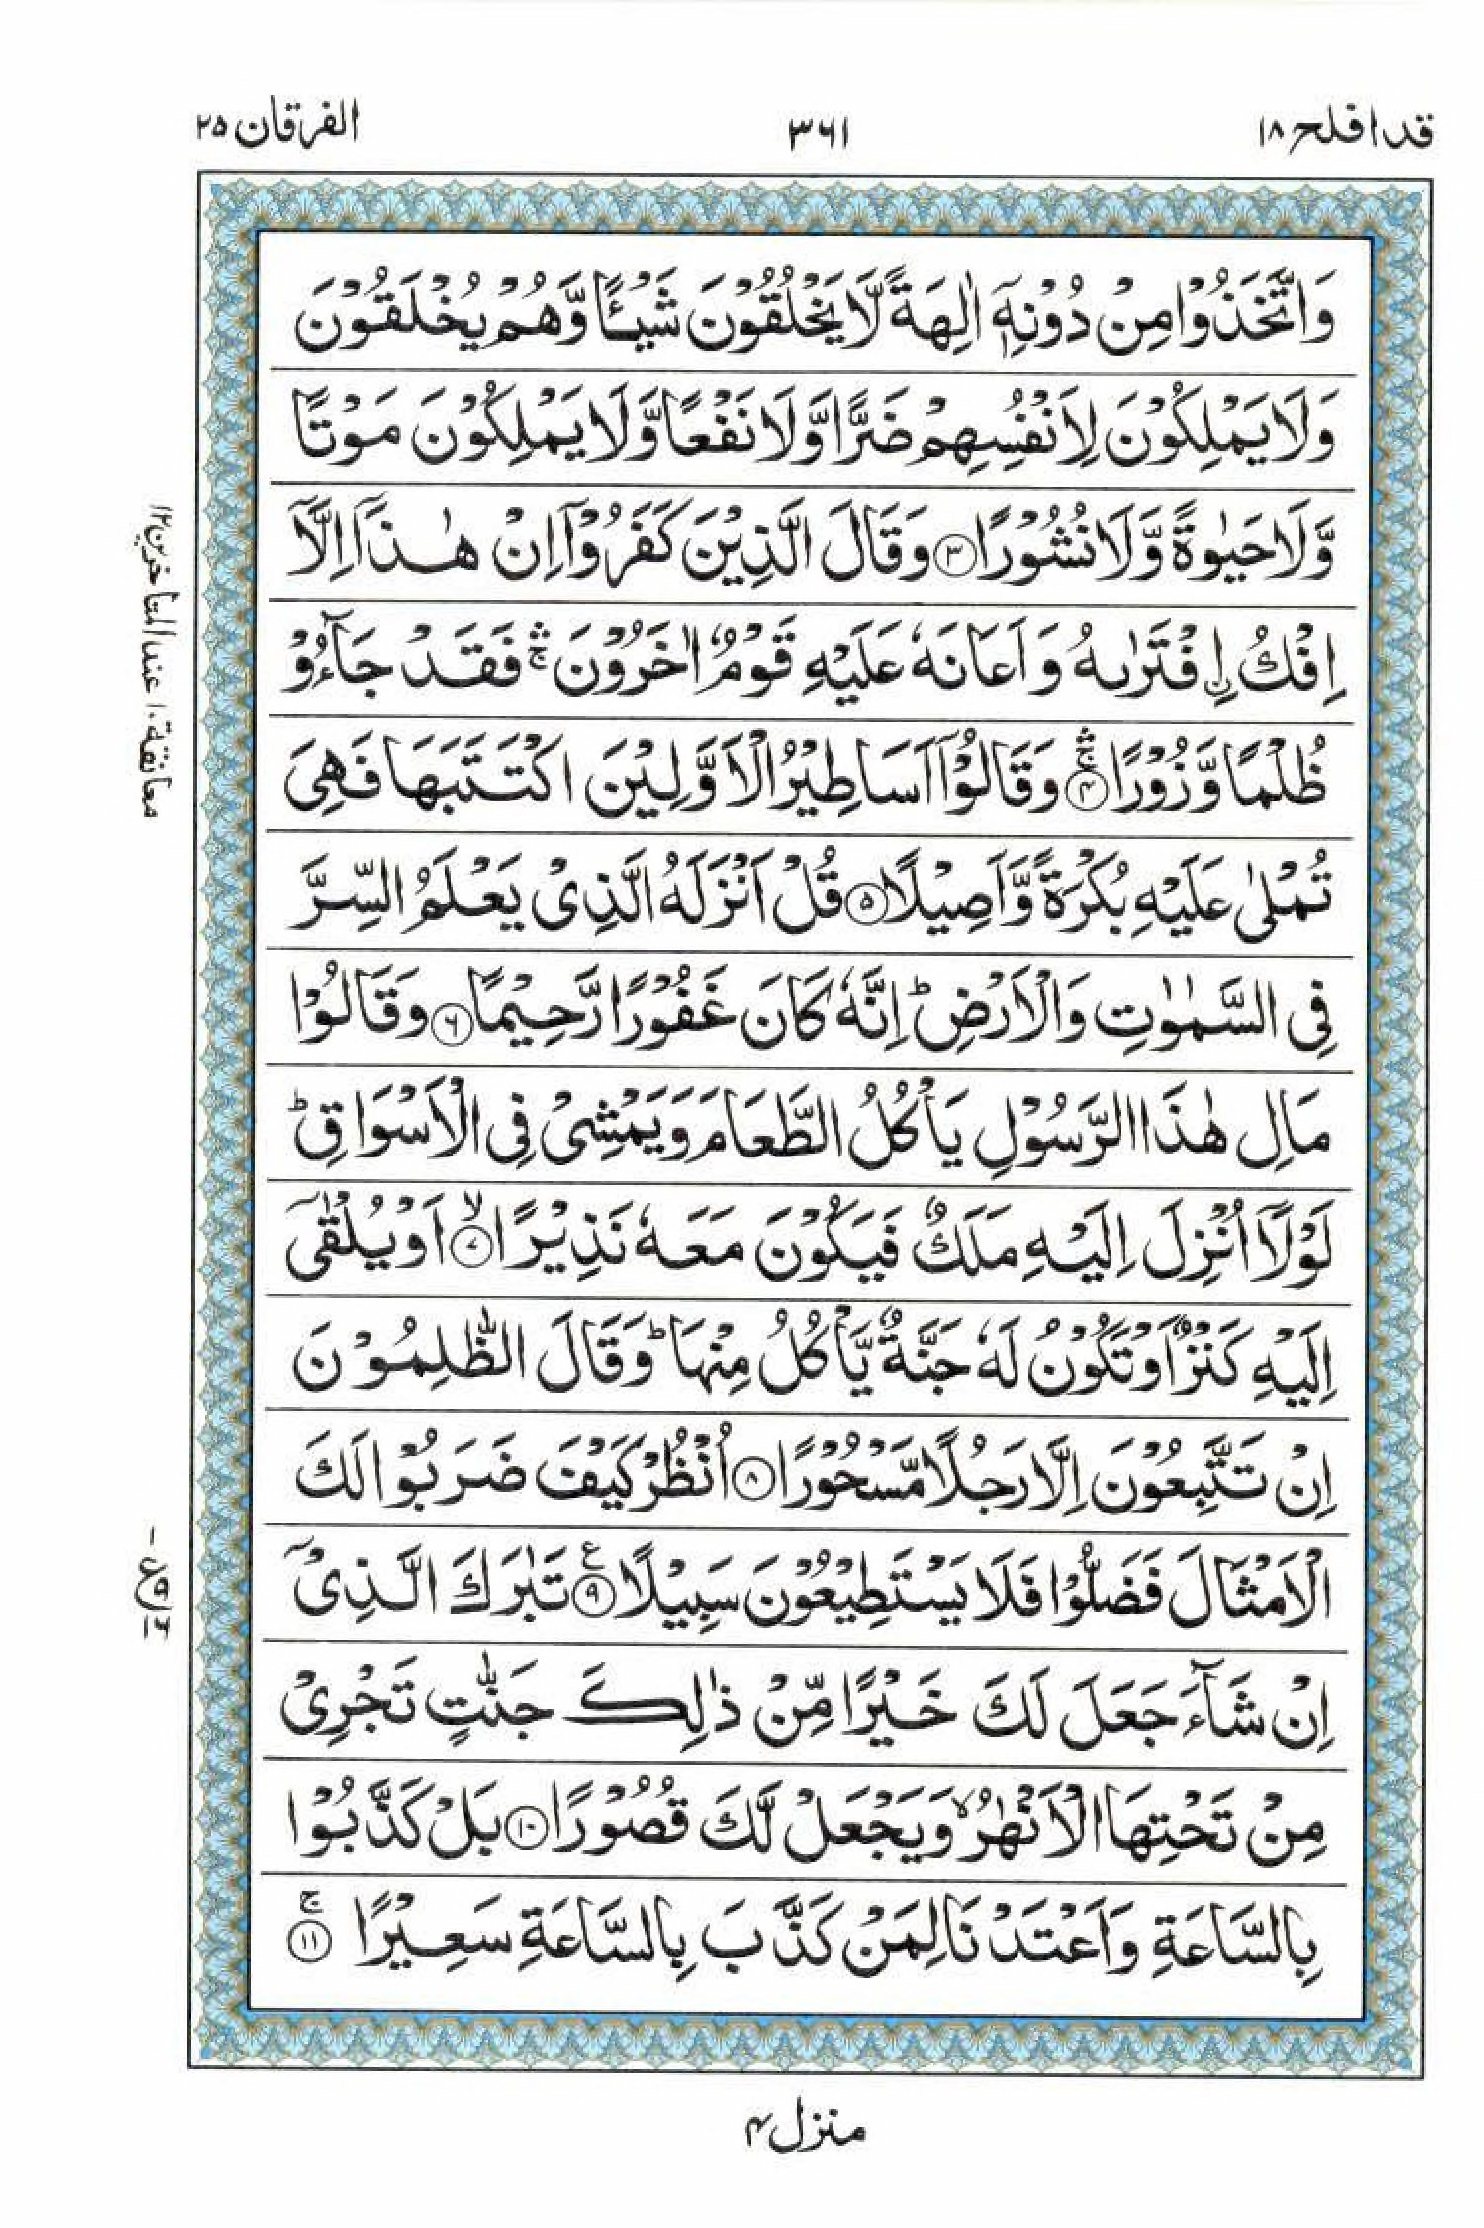 قد افلح ۱۸
۳۶۱
الفرقان ۲۵
وَاتَّخَذُوْا مِنْ دُوْنِهٖۤ اٰلِهَةً لَّا يَخْلُقُوْنَ شَيْـًٔا وَّهُمْ يُخْلَقُوْنَ
وَلَا يَمْلِكُوْنَ لِاَنْفُسِهِمْ ضَرًّا وَّلَا نَفْعًا وَّلَا يَمْلِكُوْنَ مَوْتًا
وَّلَا حَيٰوةً وَّلَا نُشُوْرًا ۝۳ وَقَالَ الَّذِيْنَ كَفَرُوْۤا اِنْ هٰذَاۤ اِلَّاۤ
اِفْكُ اِ۟فْتَرٰىهُ وَاَعَانَهٗ عَلَيْهِ قَوْمٌ اٰخَرُوْنَ ۛۚ فَقَدْ جَآءُوْ
ظُلْمًا وَّزُوْرًا ۛۚ ۝۴ وَقَالُوْۤا اَسَاطِيْرُ الْاَوَّلِيْنَ اكْتَتَبَهَا فَهِيَ
تُمْلٰى عَلَيْهِ بُكْرَةً وَّاَصِيْلًا ۝۵ قُلْ اَنْزَلَهُ الَّذِيْ يَعْلَمُ السِّرَّ
فِي السَّمٰوٰتِ وَالْاَرْضِ ؕ اِنَّهٗ كَانَ غَفُوْرًا رَّحِيْمًا ۝۶ وَقَالُوْا
مَالِ هٰذَا الرَّسُوْلِ يَاْكُلُ الطَّعَامَ وَيَمْشِيْ فِي الْاَسْوَاقِ ؕ
لَوْلَاۤ اُنْزِلَ اِلَيْهِ مَلَكٌ فَيَكُوْنَ مَعَهٗ نَذِيْرًا ۙ ۝۷ اَوْ يُلْقٰۤى
اِلَيْهِ كَنْزٌ اَوْ تَكُوْنُ لَهٗ جَنَّةٌ يَّاْكُلُ مِنْهَا ؕ وَقَالَ الظّٰلِمُوْنَ
اِنْ تَتَّبِعُوْنَ اِلَّا رَجُلًا مَّسْحُوْرًا ۝۸ اُنْظُرْ كَيْفَ ضَرَبُوْا لَكَ
الْاَمْثَالَ فَضَلُّوْا فَلَا يَسْتَطِيْعُوْنَ سَبِيْلًا ۝۹ ع تَبٰرَكَ الَّذِيْۤ
اِنْ شَآءَ جَعَلَ لَكَ خَيْرًا مِّنْ ذٰلِكَ جَنّٰتٍ تَجْرِيْ
مِنْ تَحْتِهَا الْاَنْهٰرُ ۙ وَيَجْعَلْ لَّكَ قُصُوْرًا ۝۱۰ بَلْ كَذَّبُوْا
بِالسَّاعَةِ وَاَعْتَدْنَا لِمَنْ كَذَّبَ بِالسَّاعَةِ سَعِيْرًا ۚ ۝۱۱
معانقة ۱۰ عند المتاخرين ۱۲
منزل ۴